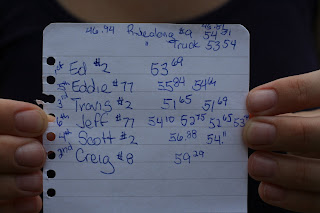 46.94 #9 54.31
" Truck 53 54
1st Ed #2 53 69
5th Eddie #77 55 84 54 64
3rd Travis #2 51 65 51 69
6th Jeff #77 54 10 52 75 52 65 53
4th Scott #2 56.38 54."
2nd Creig #8 59 29